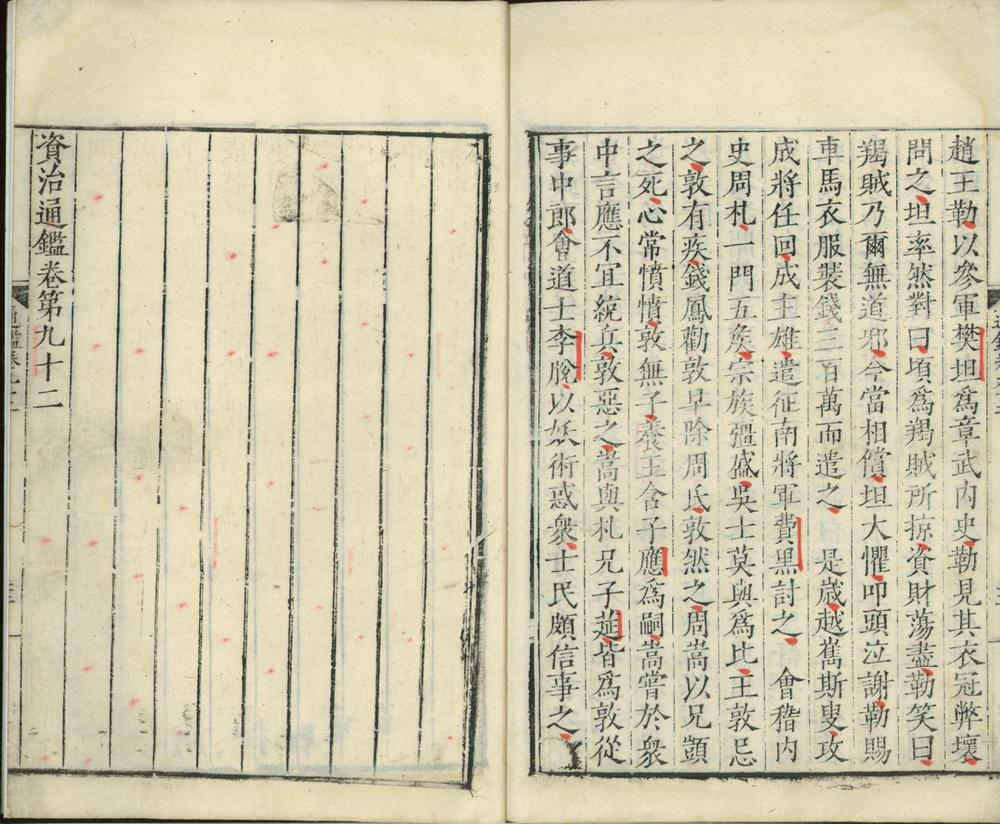 趙王勒以參軍樊坦爲章武内史勒見其衣冠弊壞
問之坦率然對曰頃爲羯賊所掠資財蕩盡勒笑曰
羯賊乃爾無道邪今當相償坦大懼叩頭泣謝勒賜
車馬衣服裝錢三百萬而遣之 是歲越嶲斯叟攻
成將任回成主雄遣征南將軍費黑討之 會稽内
史周札一門五侯宗族彊盛吳士莫與爲比王敦忌
之敦有疾錢鳳勸敦早除周氏敦然之周嵩以兄顗
之死心常憤憤敦無子養王含子應爲嗣嵩嘗於衆
中言應不宜統兵敦惡之嵩與札兄子莚皆爲敦從
事中郎會道士李脫以妖術惑衆士民頗信事之
資治通鑑卷第九十二